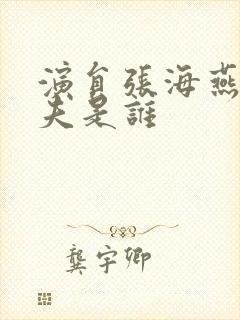 演員張海燕
夫是誰
龔宇卿